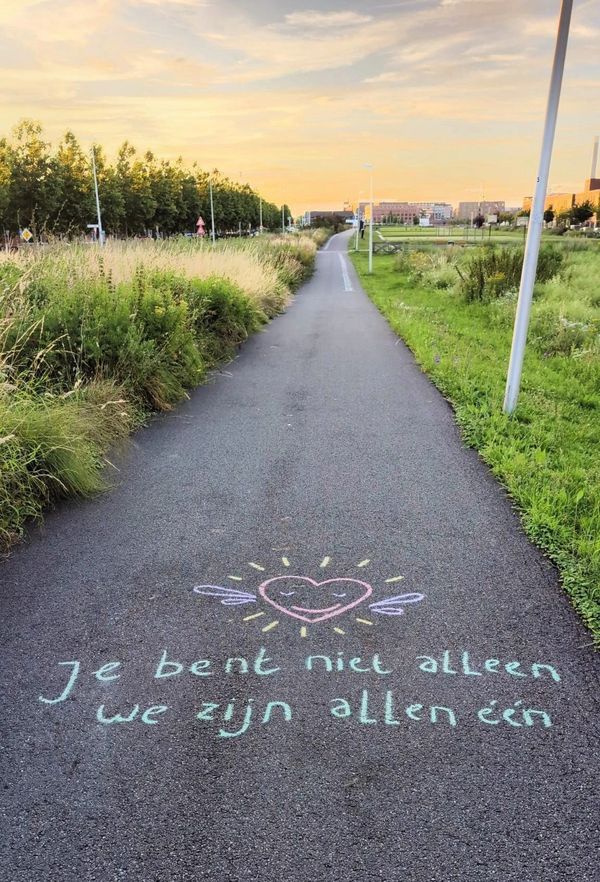 Je bent niet alleen
we zijn allen één